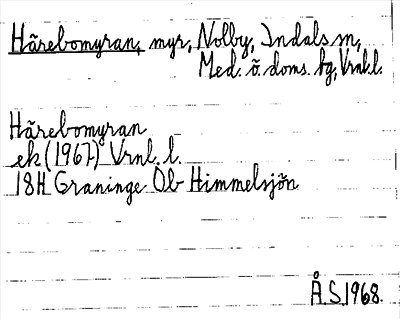 Härebomyran, myr, Nolby, Indals sn,
Med. ö. doms. bg, Vrnl. l.
Härebomyran
ek (1967) Vrnl. l.
18H Graninge Ob Himmelsjön
Å.S.1968.